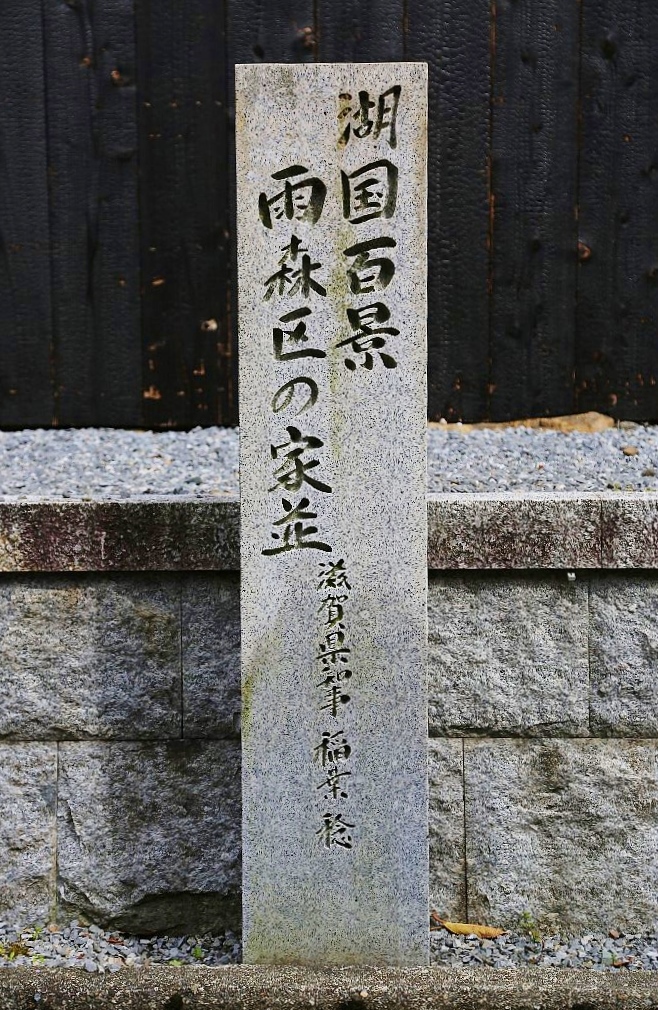 湖国百景
雨森区の家並
滋賀県知事 稲葉 稔